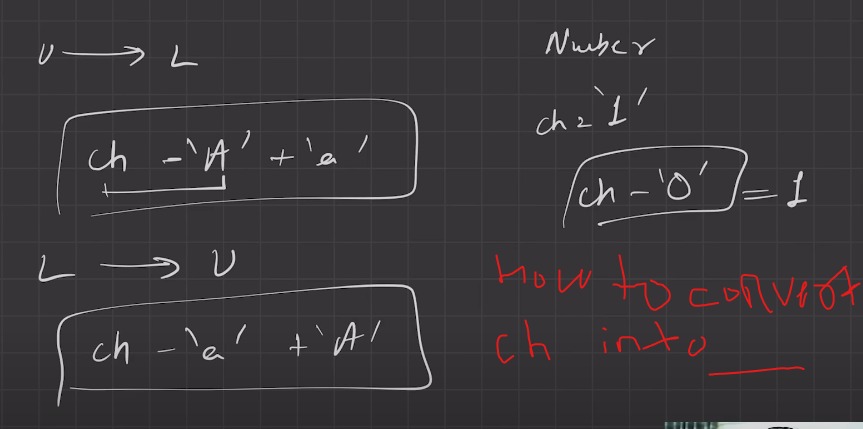 U → L
ch - 'A' + 'a'
L → U
ch - 'a' + 'A'
Number
ch = '1'
ch - '0' = 1
How to convert
ch into ___